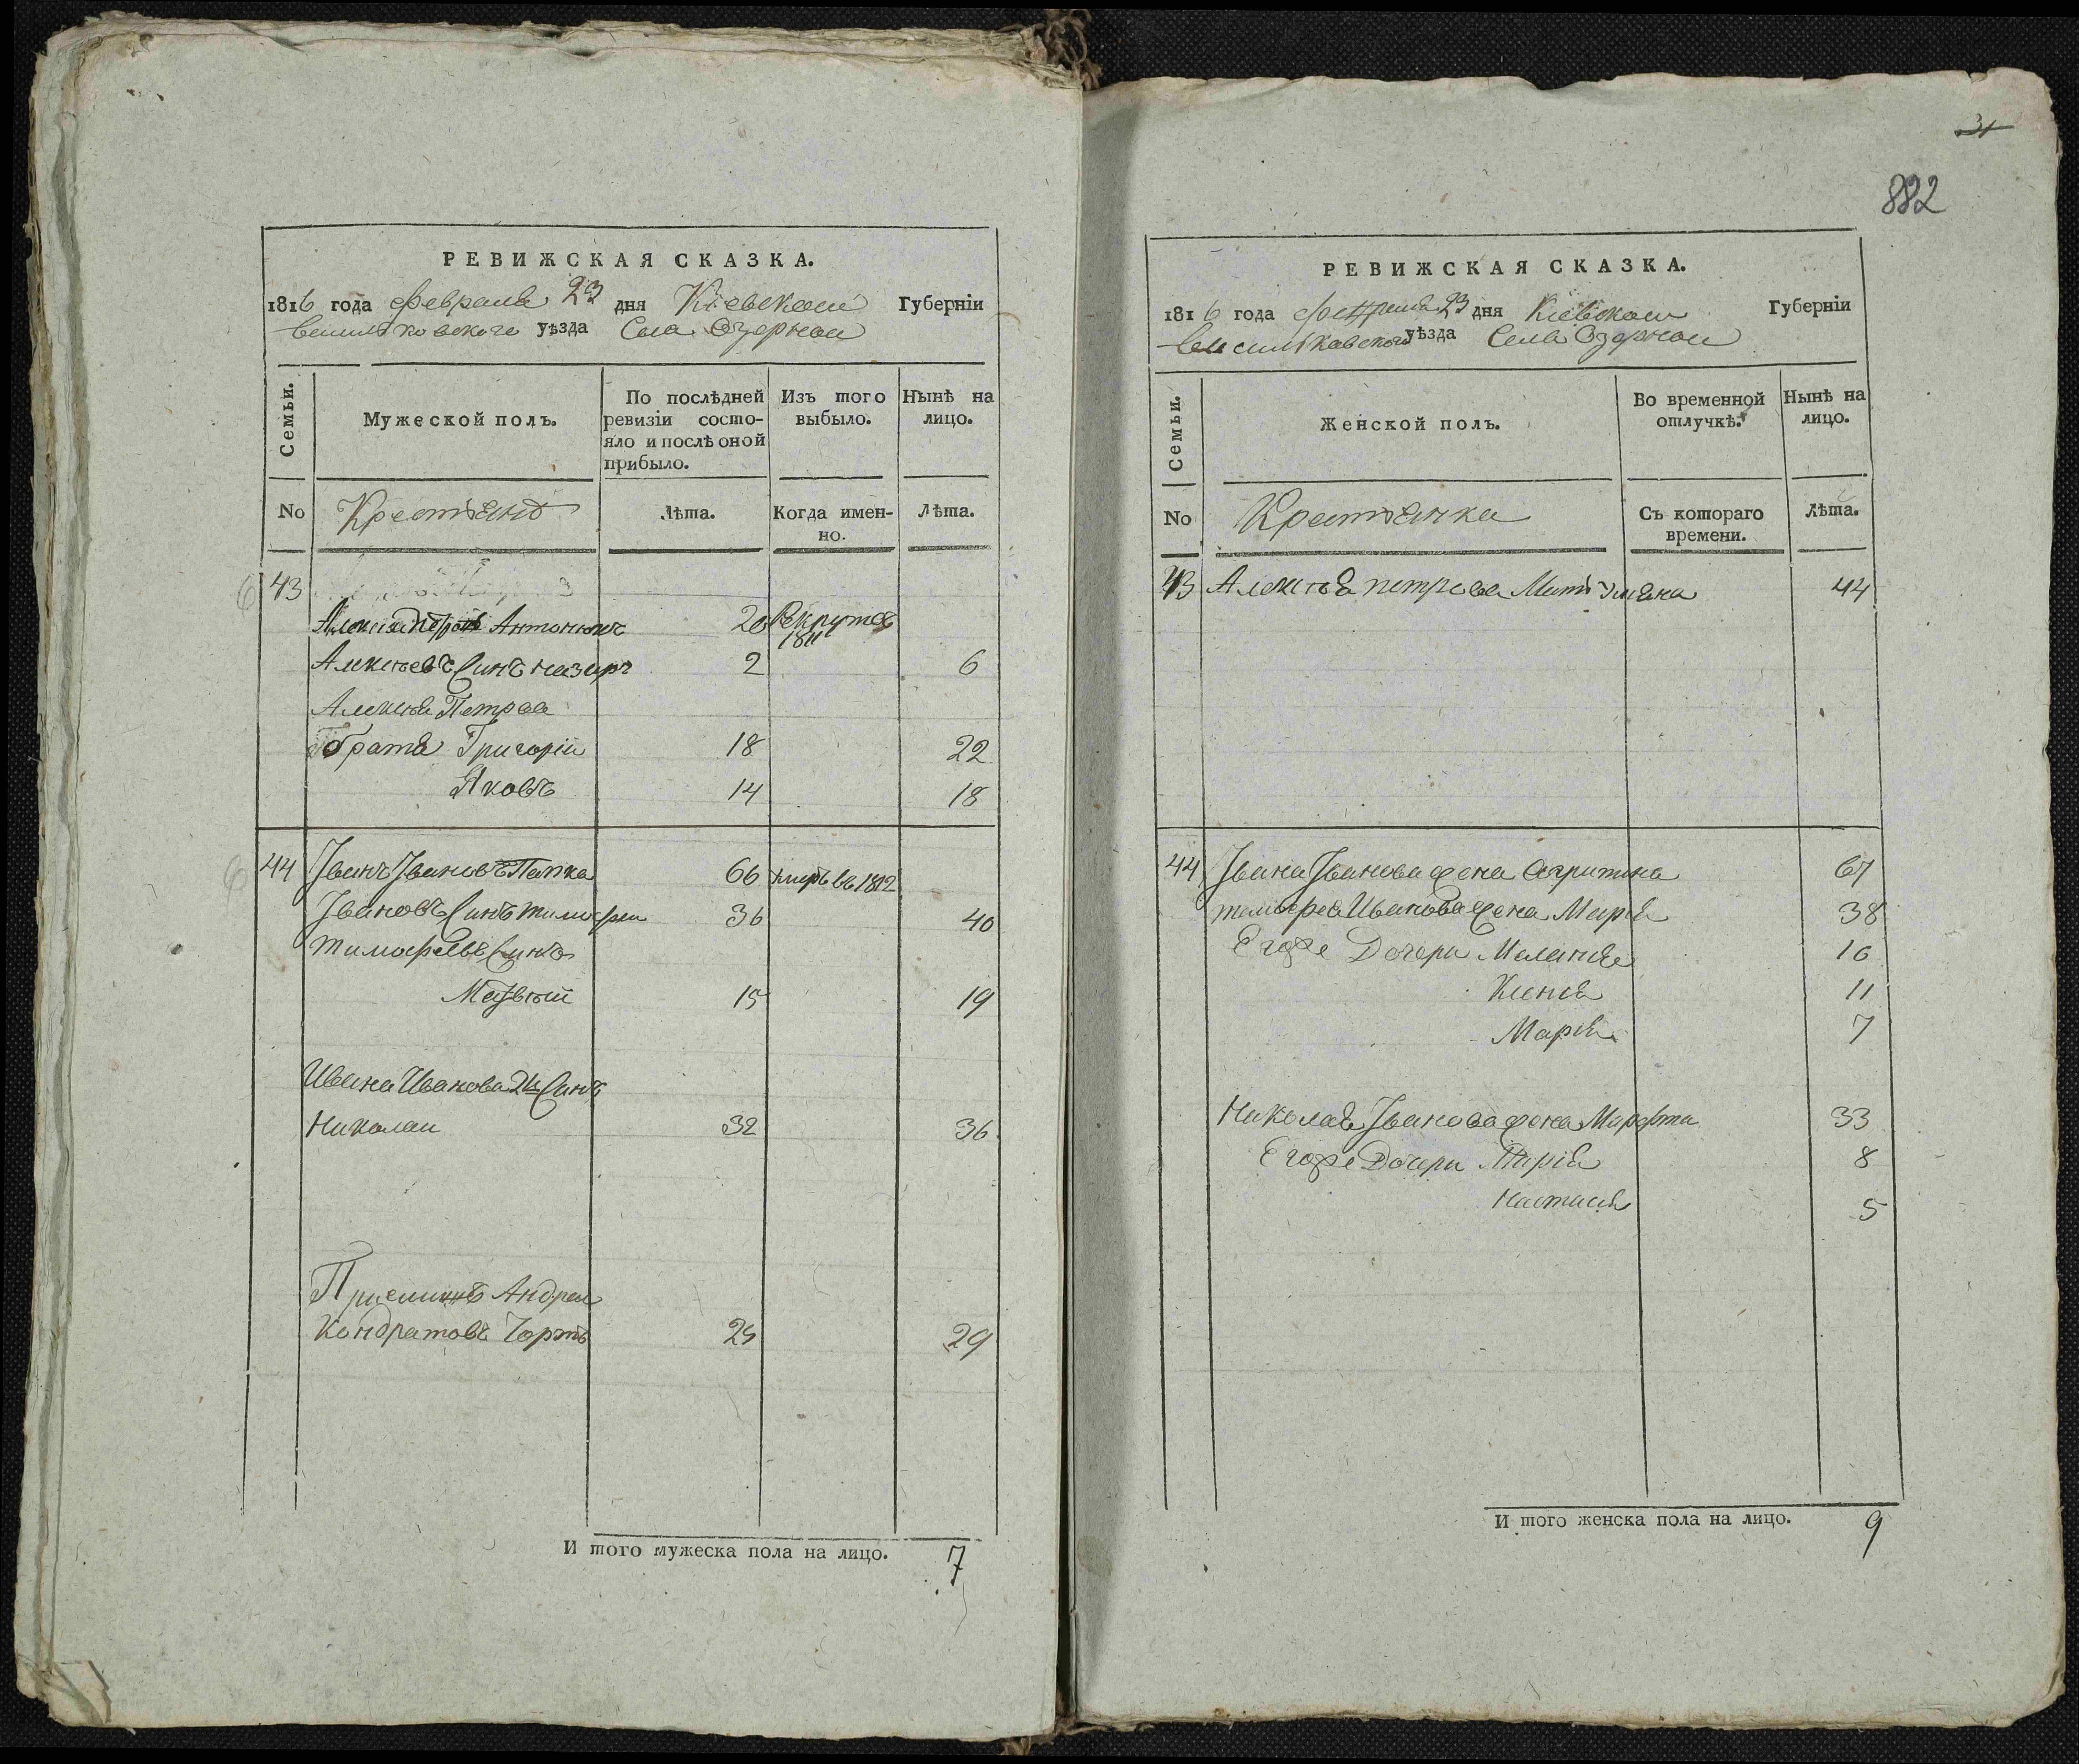 РЕВИЖСКАЯ СКАЗКА.
1816 года Февраля 23 дня Кіевской Губерніи
Васильковского уѣзда Села Озерной
Семьи.
Мужеской полъ.
По послѣдней ревизіи состо-
яло и послѣ оной
прибыло.
Изъ того
выбыло.
Нынѣ на
лицо.
No
Крестьянѣ
Лѣта.
Когда имен-
но.
Лѣта.
43
Антонюкъ 20 Рекрутъ
1811
Алексѣевъ Синъ Назаръ 2 6
Алексѣя Петрова
брата Григорій 18 22
Яковъ 14 18
44 Іванъ Івановъ Папка 66 умръ въ 1812
Івановъ Синъ Тимофеи 36 40
Тимофеевъ Синъ
Матвѣй 15 19
Ивана Иванова 2й Синъ
Николаи 32 36
Приемишъ Андреи
Кондратовъ Чортъ 25 29
И того мужеска пола на лицо. 7
31
882
РЕВИЖСКАЯ СКАЗКА.
1816 года 23 дня Кіевской Губерніи
Васильковского уѣзда Села Озерной
Семьи.
Женской полъ.
Во временной
отлучкѣ.
Нынѣ на
лицо.
No
Крестьянка
Съ котораго
времени.
Лѣта.
43 Алексѣя Петрова Мать 44
44 Івана Иванова жена Агрипина 67
Тимофея Иванова жена Марія 38
Егоже Дочери Меланія 16
Ксенія 11
Марія 7
Николая Іванова жена Марфта 33
Егоже Дочери Марія 8
Настасія 5
И того женска пола на лицо. 9